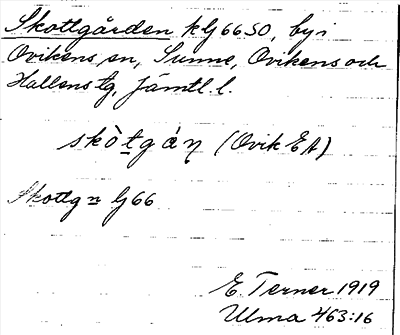 Skottgården klj 66 SO, by i
Ovikens sn, Sunne, Ovikens och
Hallens tg, Jämtl. l.
skòt̲gá̀ṇ (Ovik EA)
Skottgn lj 66
E. Terner 1919
Ulma 463:16